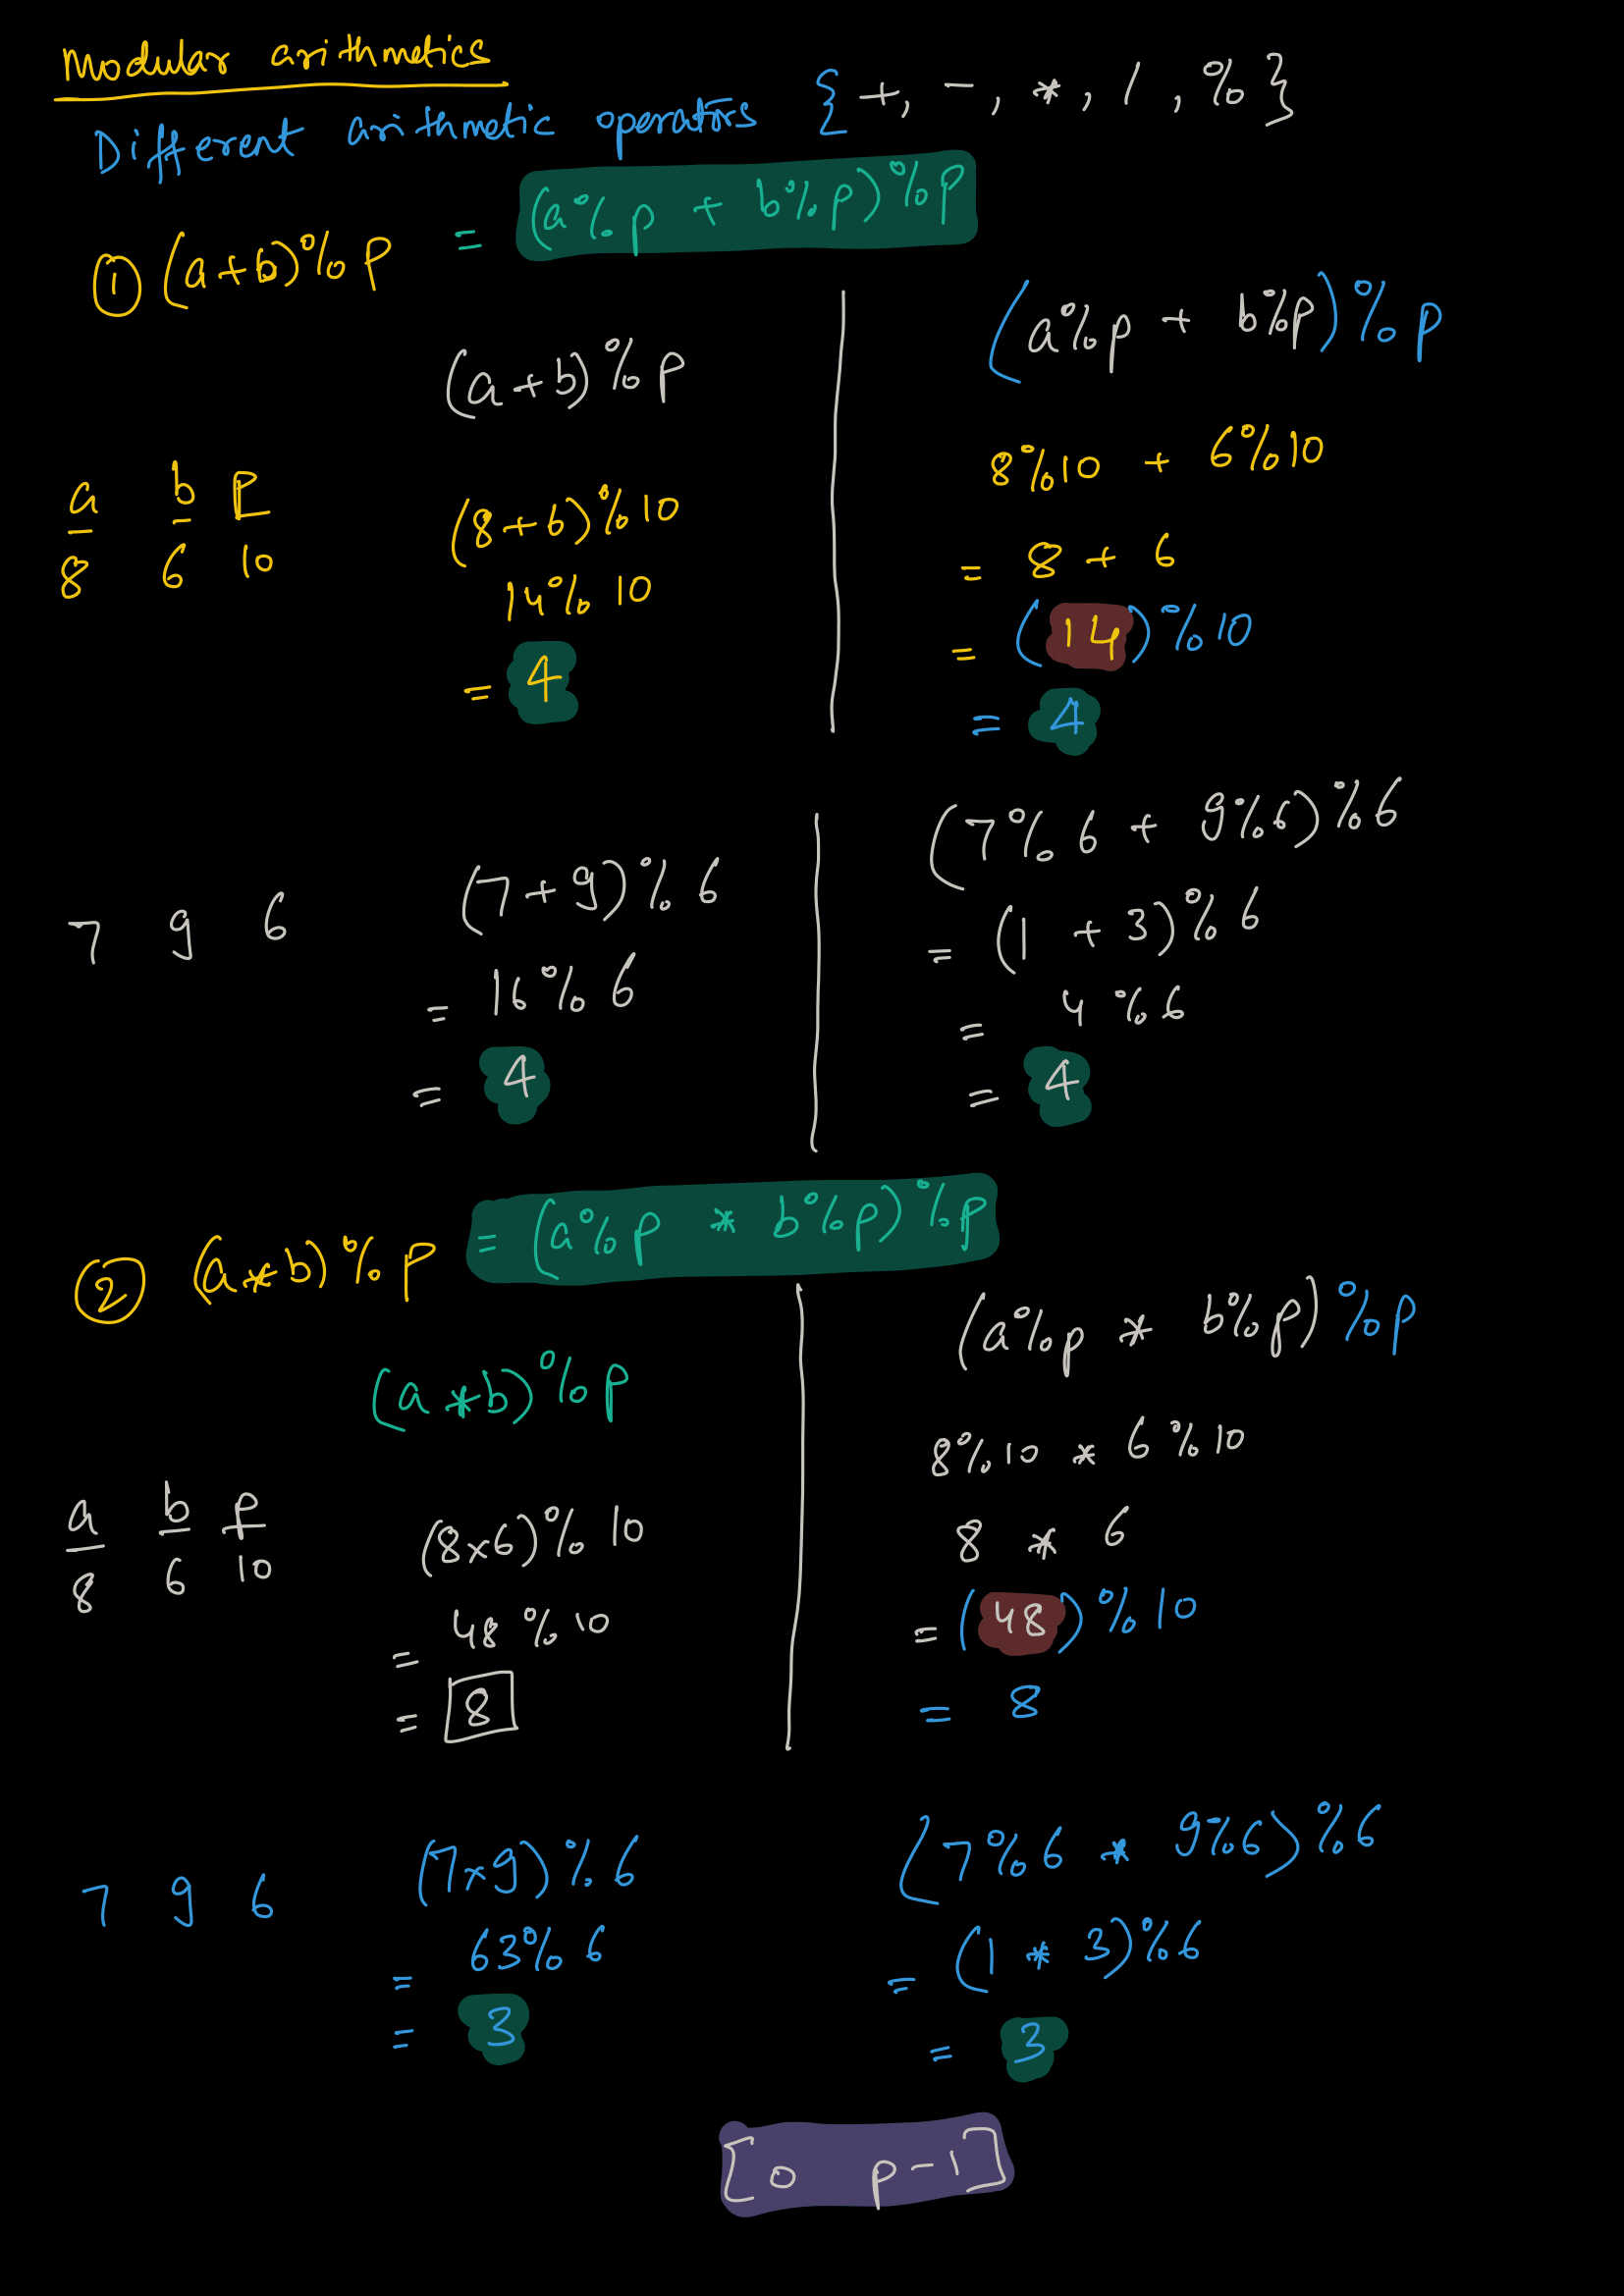 Modular arithmetics
Different arithmetic operators { +, -, *, /, % }
① (a+b)%p = (a%p + b%p)%p
(a+b)%p
(a%p + b%p)%p
a b p
8 6 10
(8+6)%10
14%10
= 4
8%10 + 6%10
= 8 + 6
= (14)%10
= 4
7 9 6
(7+9)%6
= 16%6
= 4
(7%6 + 9%6)%6
= (1 + 3)%6
= 4%6
= 4
② (a*b)%p = (a%p * b%p)%p
(a*b)%p
(a%p * b%p)%p
a b p
8 6 10
(8x6)%10
= 48%10
= 8
8%10 * 6%10
8 * 6
= (48)%10
= 8
7 9 6
(7x9)%6
= 63%6
= 3
(7%6 * 9%6)%6
= (1 * 3)%6
= 3
[0 p-1]